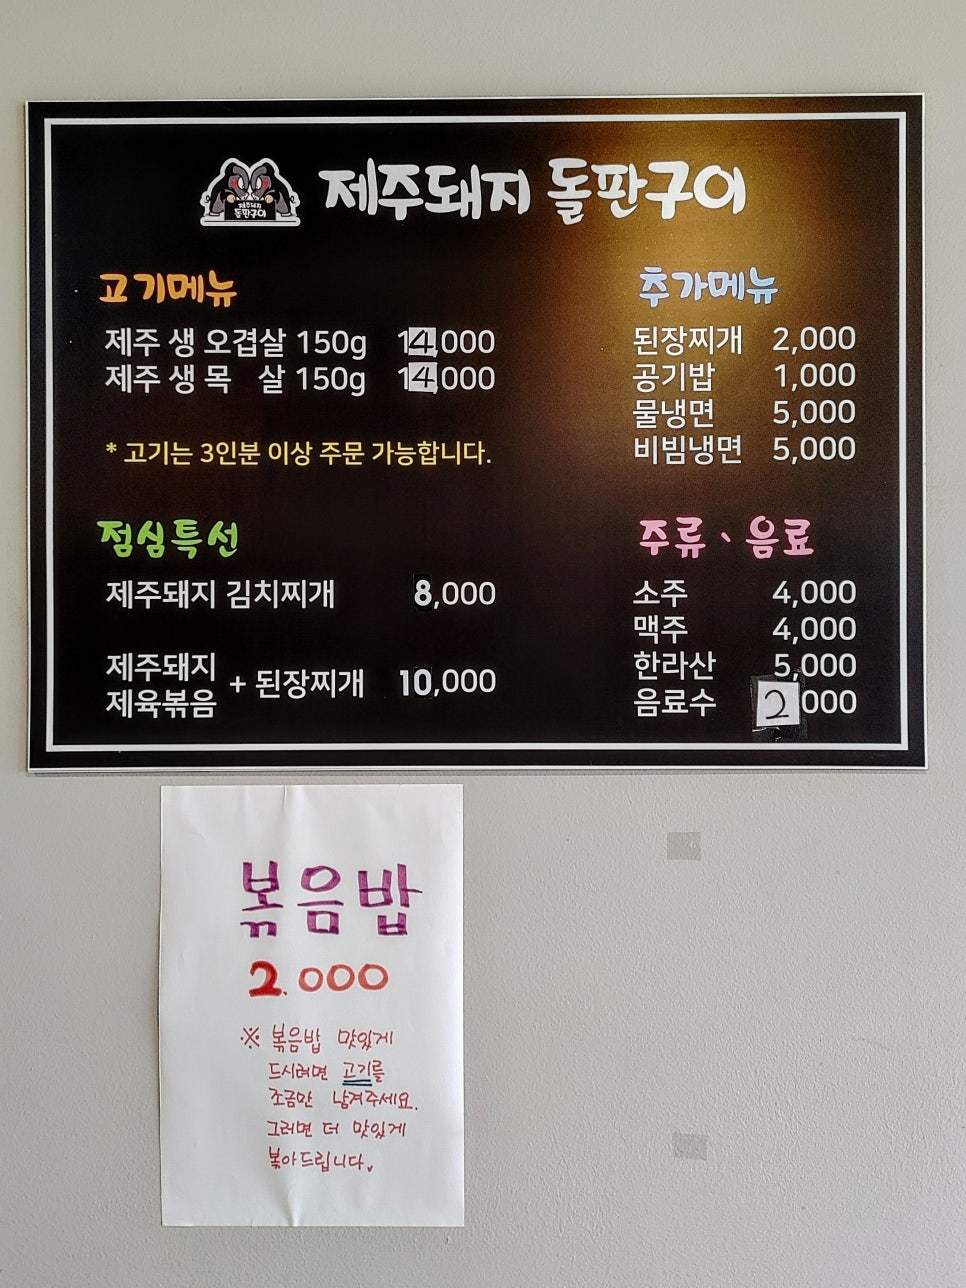 제주돼지
돌판구이
제주돼지 돌판구이
고기메뉴
제주 생 오겹살 150g 14,000
제주 생 목 살 150g 14,000
* 고기는 3인분 이상 주문 가능합니다.
점심특선
제주돼지 김치찌개 8,000
제주돼지
제육볶음 + 된장찌개 10,000
추가메뉴
된장찌개 2,000
공기밥 1,000
물냉면 5,000
비빔냉면 5,000
주류、음료
소주 4,000
맥주 4,000
한라산 5,000
음료수 2000
볶음밥
2.000
※ 볶음밥 맛있게
드시려면 고기를
조금만 남겨주세요.
그러면 더 맛있게
볶아드립니다.